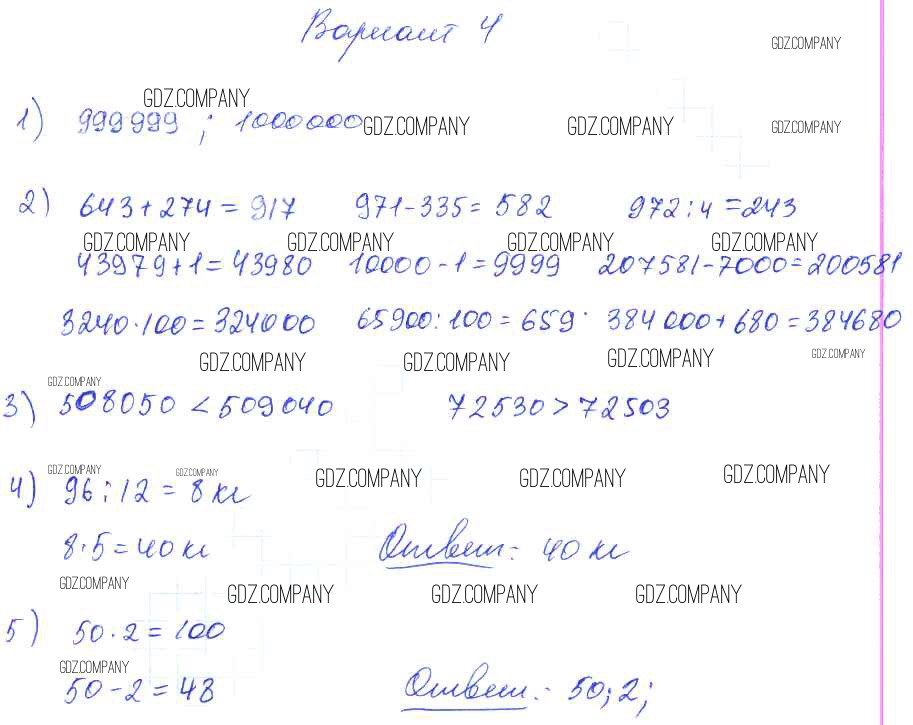 Вариант 4
GDZ.COMPANY
GDZ.COMPANY
1) 999999 ; 1000000 GDZ.COMPANY GDZ.COMPANY GDZ.COMPANY
2) 643+274=917 971-335=582 972:4=243
GDZ.COMPANY GDZ.COMPANY GDZ.COMPANY GDZ.COMPANY
43979+1=43980 10000-1=9999 207581-7000=200581
3240·100=324000 65900:100=659 384000+680=384680
GDZ.COMPANY GDZ.COMPANY GDZ.COMPANY GDZ.COMPANY
GDZ.COMPANY
3) 508050 < 509040 72530 > 72503
GDZ.COMPANY GDZ.COMPANY GDZ.COMPANY GDZ.COMPANY GDZ.COMPANY
4) 96:12=8 кг
8·5=40 кг Ответ: 40 кг
GDZ.COMPANY GDZ.COMPANY GDZ.COMPANY GDZ.COMPANY
5) 50·2=100
GDZ.COMPANY
50-2=48 Ответ: 50; 2;